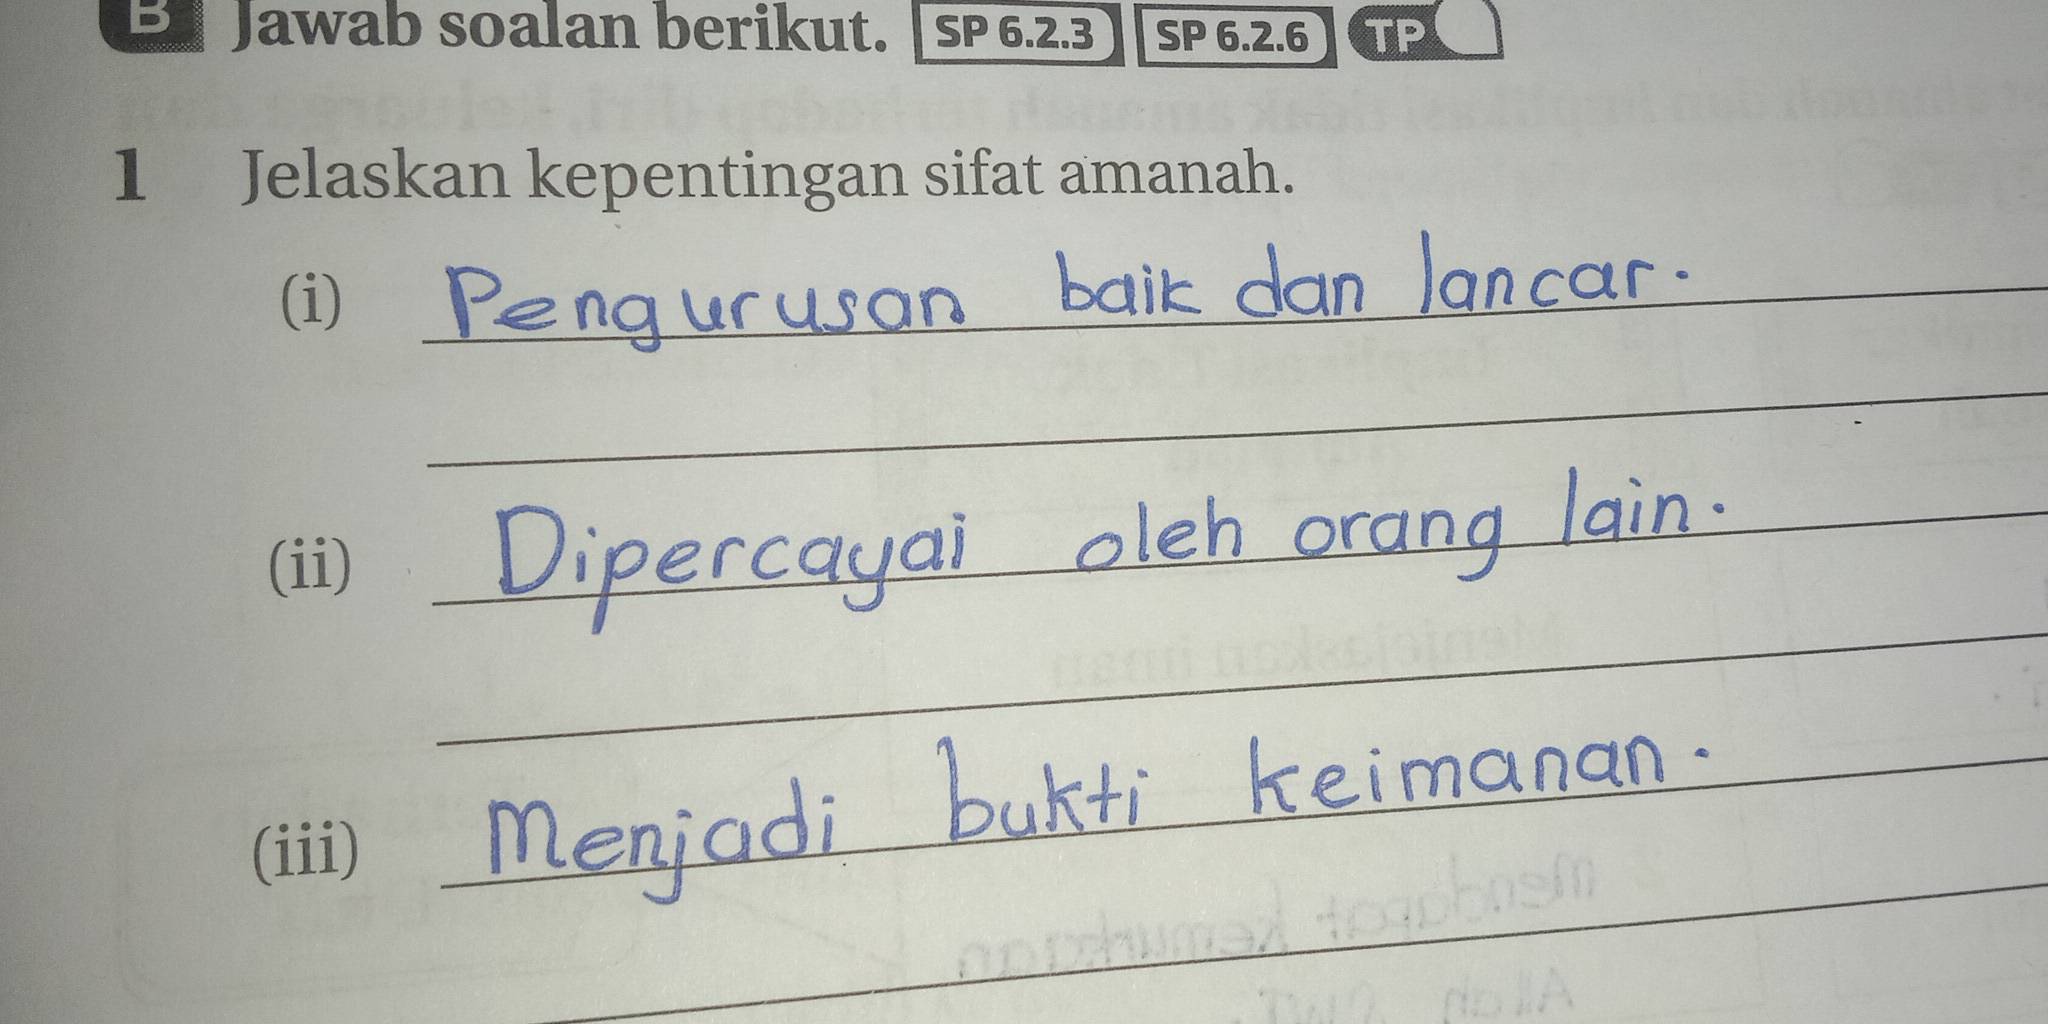 B Jawab soalan berikut. SP 6.2.3 SP 6.2.6 TP
1 Jelaskan kepentingan sifat amanah.
(i) Pengurusan baik dan lancar.
(ii) Dipercayai oleh orang lain.
(iii) Menjadi bukti keimanan.